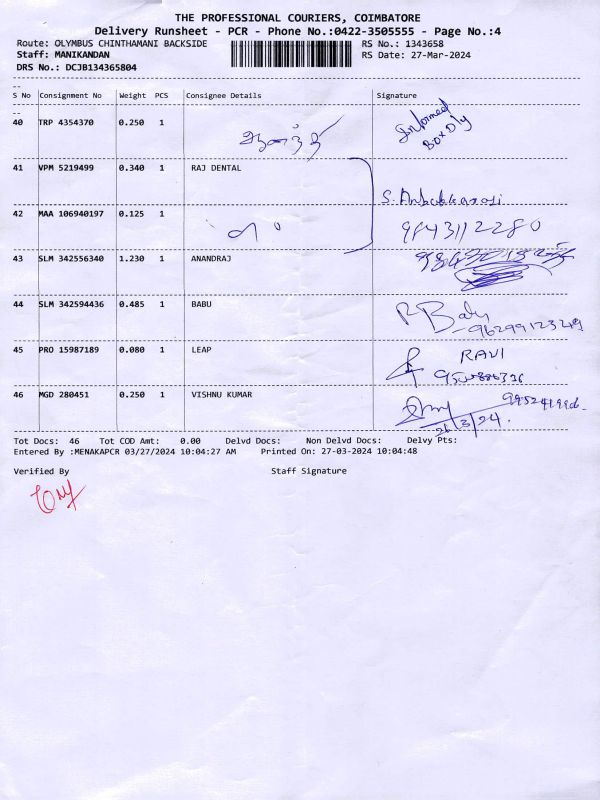 THE PROFESSIONAL COURIERS, COIMBATORE
Delivery Runsheet - PCR - Phone No.:0422-3505555 - Page No.:4
Route: OLYMBUS CHINTHAMANI BACKSIDE RS No.: 1343658
Staff: MANIKANDAN RS Date: 27-Mar-2024
DRS No.: DCJB134365804
S No Consignment No Weight PCS Consignee Details Signature
40 TRP 4354370 0.250 1 Informed
Box Dly
41 VPM 5219499 0.340 1 RAJ DENTAL
S. Anbukkarasi
42 MAA 106940197 0.125 1 9843112280
43 SLM 342556340 1.230 1 ANANDRAJ
44 SLM 342594436 0.485 1 BABU
R Babu
45 PRO 15987189 0.080 1 LEAP RAVI
46 MGD 280451 0.250 1 VISHNU KUMAR
Tot Docs: 46 Tot COD Amt: 0.00 Delvd Docs: Non Delvd Docs: Delvy Pts:
Entered By :MENAKAPCR 03/27/2024 10:04:27 AM Printed On: 27-03-2024 10:04:48
Verified By Staff Signature